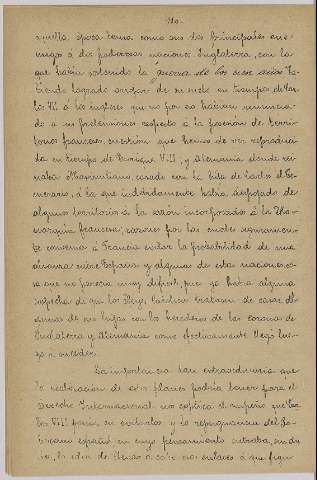 aquella época tenia como sus dos principales ene-
migos á dos poderosas naciones: Inglaterra, con la
que habia sostenido la guerra de los cien años ha-
biendo logrado arrojar de su suelo en tiempos de Car-
los VII á los ingleses que no por eso habian renuncia-
do á sus pretensiones respecto á la posesión de terri-
torios franceses, cuestión que hemos de ver reproduci-
da en tiempo de Enrique VIII, y Alemania donde rei-
naba Maximiliano, casado con la hija de Carlos el Te-
merario, á la que indebidamente habia despojado de
algunos territorios á la sazón incorporados á la Mo-
narquia francesa; razones por las cuales seguramente
convenia á Francia evitar la probabilidad de una
alianza entre España y algunas de estas naciones co-
sa que no parecia muy dificil, pues ya habia alguna
sospecha de que los Reyes Católicos trataban de casar á
algunas de sus hijas con los herederos de las coronas de
Inglaterra y Alemania como efectivamente llegó lue-
go á suceder.
La importancia bien extraordinaria que
la realización de estos planes podria tener para el
Derecho Internacional nos explica el empeño que Car-
los VIII ponia en evitarlos y la repugnancia del So-
berano español en cuyo pensamiento entraba, sin du-
da, la idea de llevar á cabo esos enlaces á que fiqu